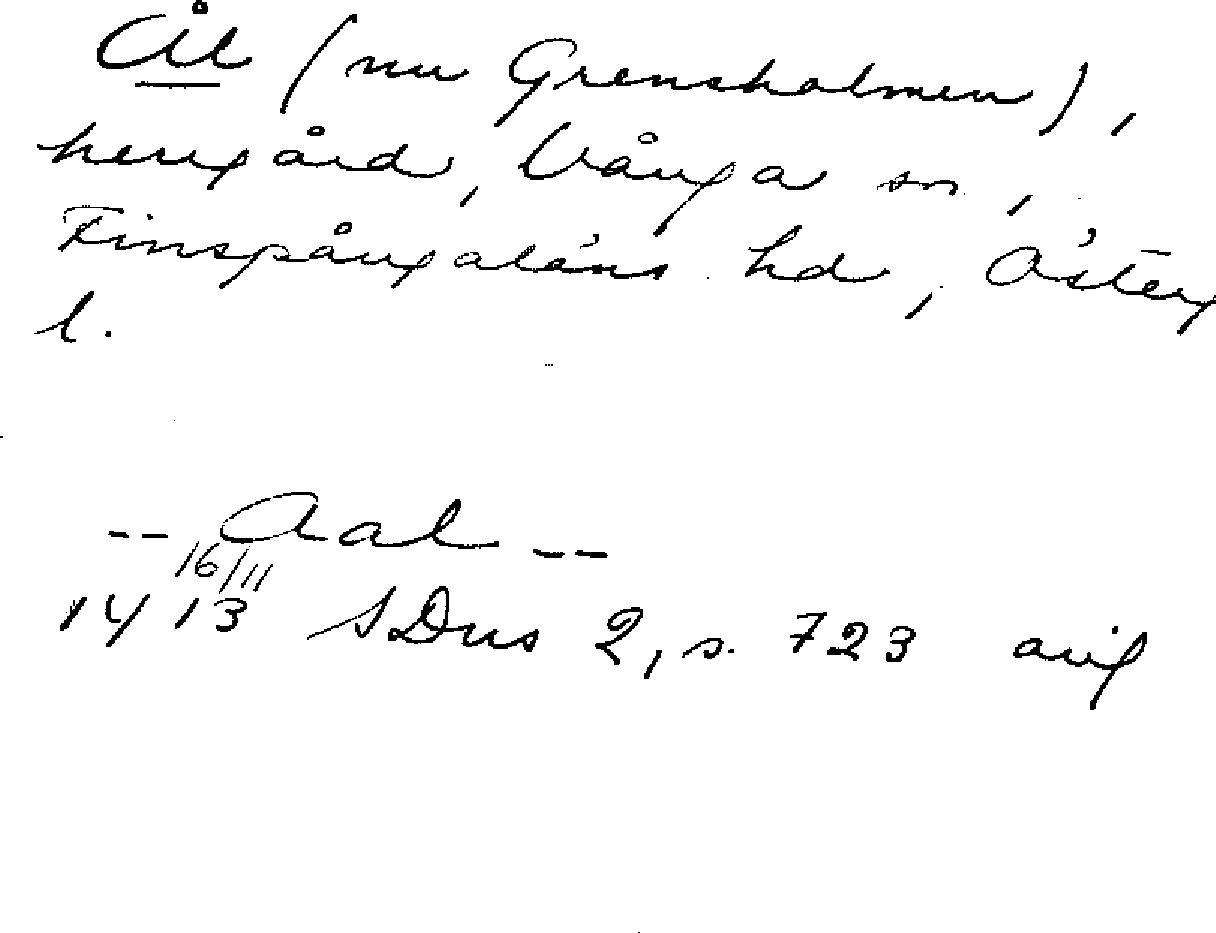 Ål (nu Grensholmen),
herrgård, Vånga sn,
Finspångaläns hd, Österg
l.
-- Aal --
16/11
1413 SDns 2, s. 723 avs